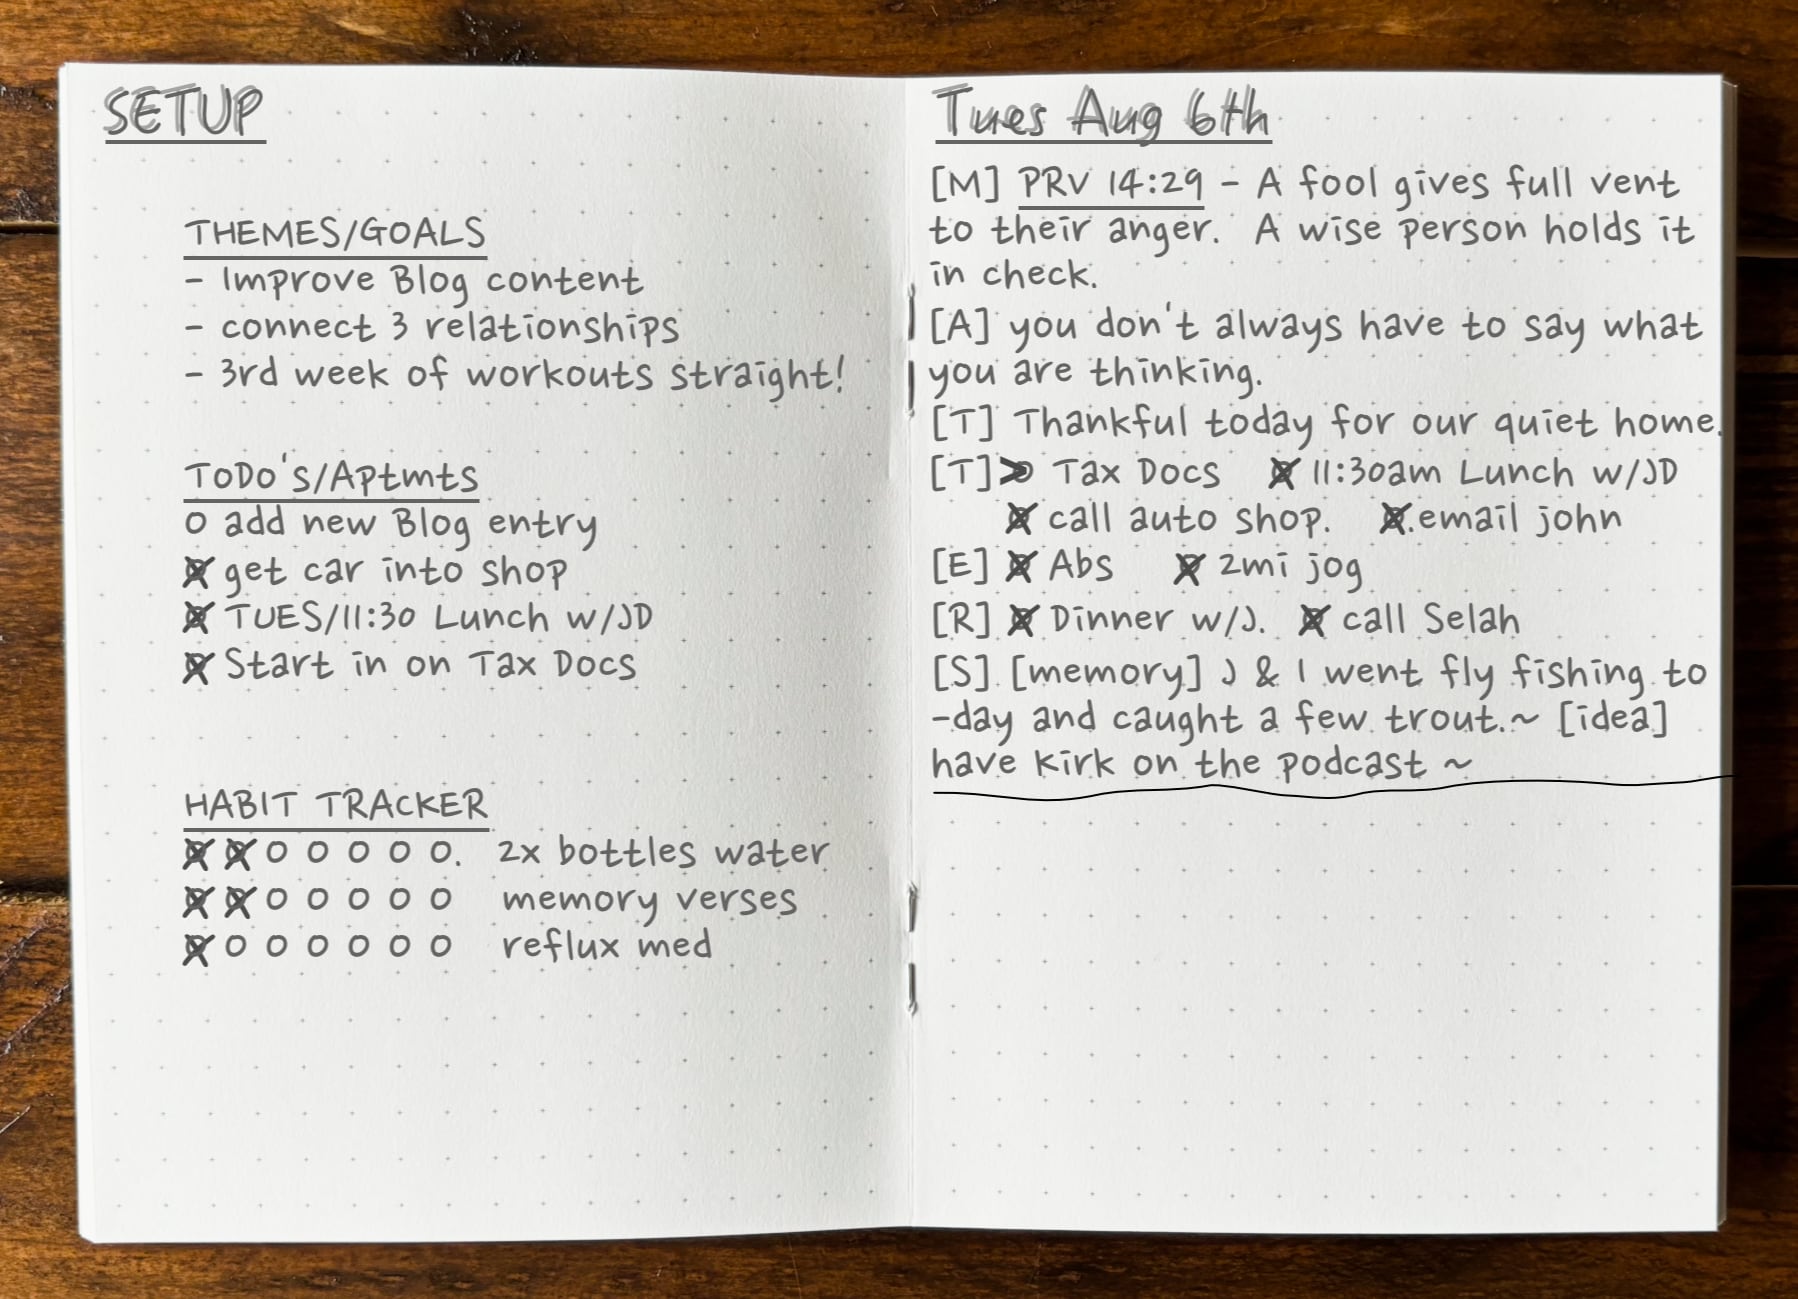 SETUP
THEMES/GOALS
- Improve Blog content
- connect 3 relationships
- 3rd week of workouts straight!
ToDo's/Aptmts
O add new Blog entry
⊗ get car into shop
⊗ TUES/11:30 Lunch w/JD
⊗ Start in on Tax Docs
HABIT TRACKER
⊗ ⊗ O O O O O. 2x bottles water
⊗ ⊗ O O O O O memory verses
⊗ O O O O O O reflux med
Tues Aug 6th
[M] PRV 14:29 - A fool gives full vent
to their anger. A wise person holds it
in check.
[A] you don't always have to say what
you are thinking.
[T] Thankful today for our quiet home.
[T] > Tax Docs ⊗ 11:30am Lunch w/JD
⊗ call auto shop. ⊗.email john
[E] ⊗ Abs ⊗ 2mi jog
[R] ⊗ Dinner w/J. ⊗ call Selah
[S] [memory] J & I went fly fishing to
-day and caught a few trout.~ [idea]
have Kirk on the podcast ~